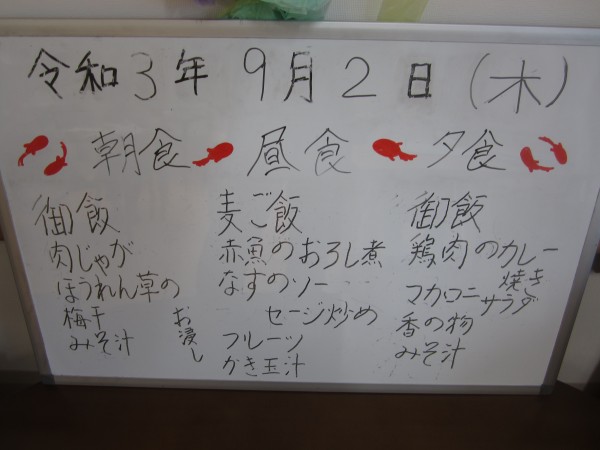 令和3年 9月2日(木)
朝食
御飯
肉じゃが
ほうれん草の
お浸し
梅干
みそ汁
昼食
麦ご飯
赤魚のおろし煮
なすのソー
セージ炒め
フルーツ
かき玉汁
夕食
御飯
鶏肉のカレー
焼き
マカロニサラダ
香の物
みそ汁